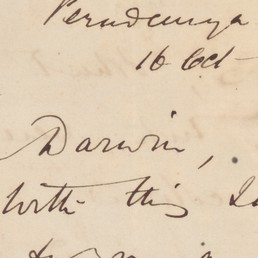 Peradeniya
16 Oct
Darwin,
With this I